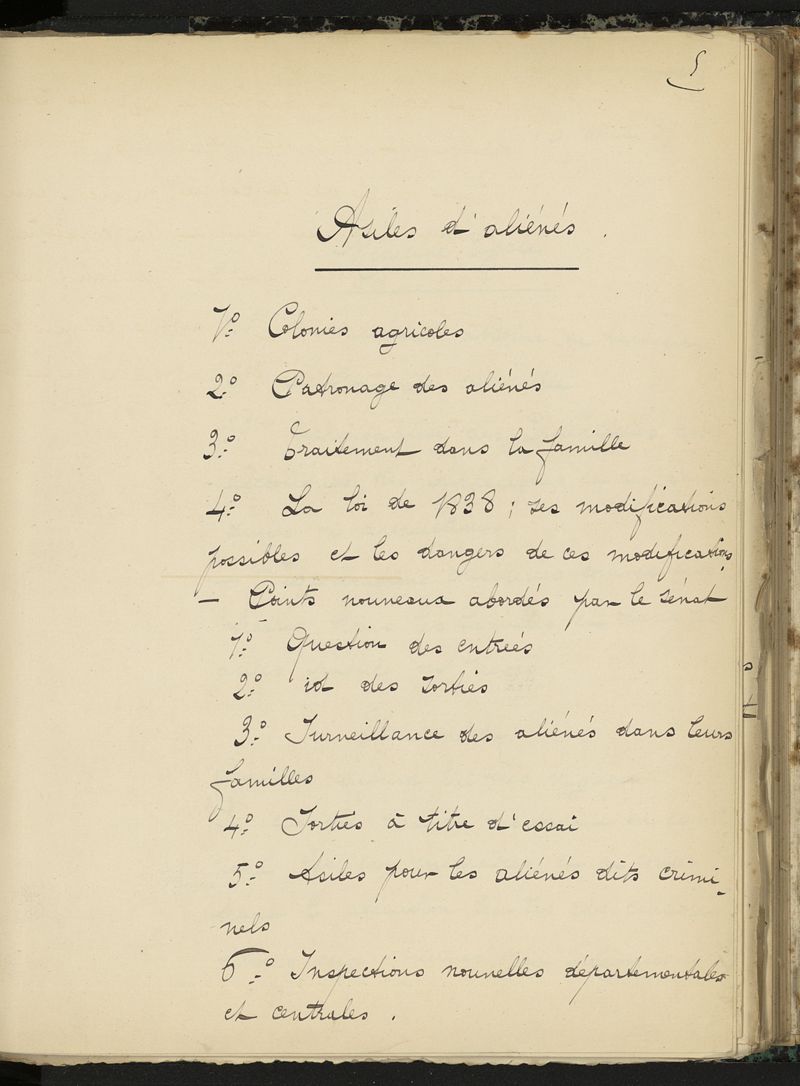 5
Asiles d'aliénés.
1º Colonies agricoles
2º Patronage des aliénés
3º Traitement dans la famille
4º La loi de 1838; ses modifications
possibles et les dangers de ces modifications.
— Points nouveaux abordés par le sénat
1º Question des entrées
2º id des sorties
3º Surveillance des aliénés dans leurs
familles
4º Sorties à titre d'essai
5º Asiles pour les aliénés dits crimi-
nels
6º Inspections nouvelles départementales
et centrales.